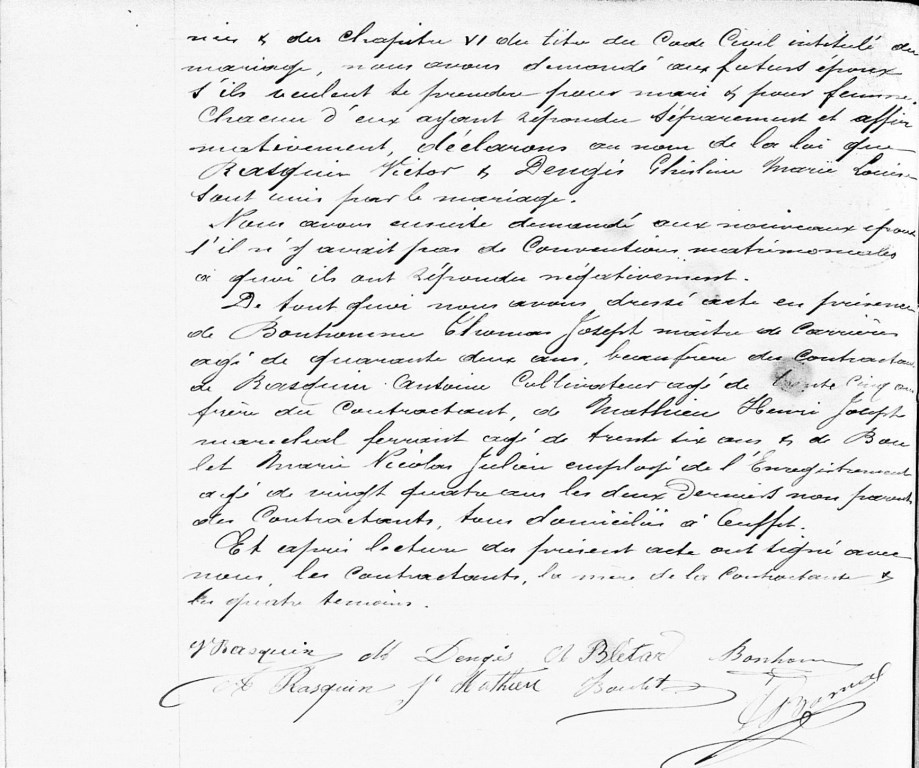 nier & du chapitre VI du titre du Code Civil intitulé du
mariage, nous avons demandé aux futurs époux
s'ils veulent se prendre pour mari & pour femme.
Chacun d'eux ayant répondu séparement et affir
mativement, déclarons au nom de la loi que
Rasquin Victor & Dengis Ghisline Marie Louise
sont unis par le mariage.
Nous avons ensuite demandé aux nouveaux époux
s'il n'y avait pas de Conventions matrimoniales
à quoi ils ont répondu négativement.
De tout quoi nous avons dressé acte en présence
de Bonhomme Thomas Joseph maître de carrières
agé de quarante deux ans, beaufrère du contractant
de Rasquin Antoine Cultivateur agé de trente cinq ans
frère du Contractant, de Mathieu Henri Joseph
marechal ferrant agé de trente six ans & de Bou
let Marie Nicolas Julien employé de l'Enregistrement
agé de vingt quatre ans les deux derniers non parents
des Contractants, tous domiciliés à Ouffet.
Et après lecture du présent acte ont signé avec
nous, les contractants, la mère de la contractante &
les quatre temoins.
V Rasquin M Dengis A Blétard Bonhomme
A Rasquin J Mathieu Boulet